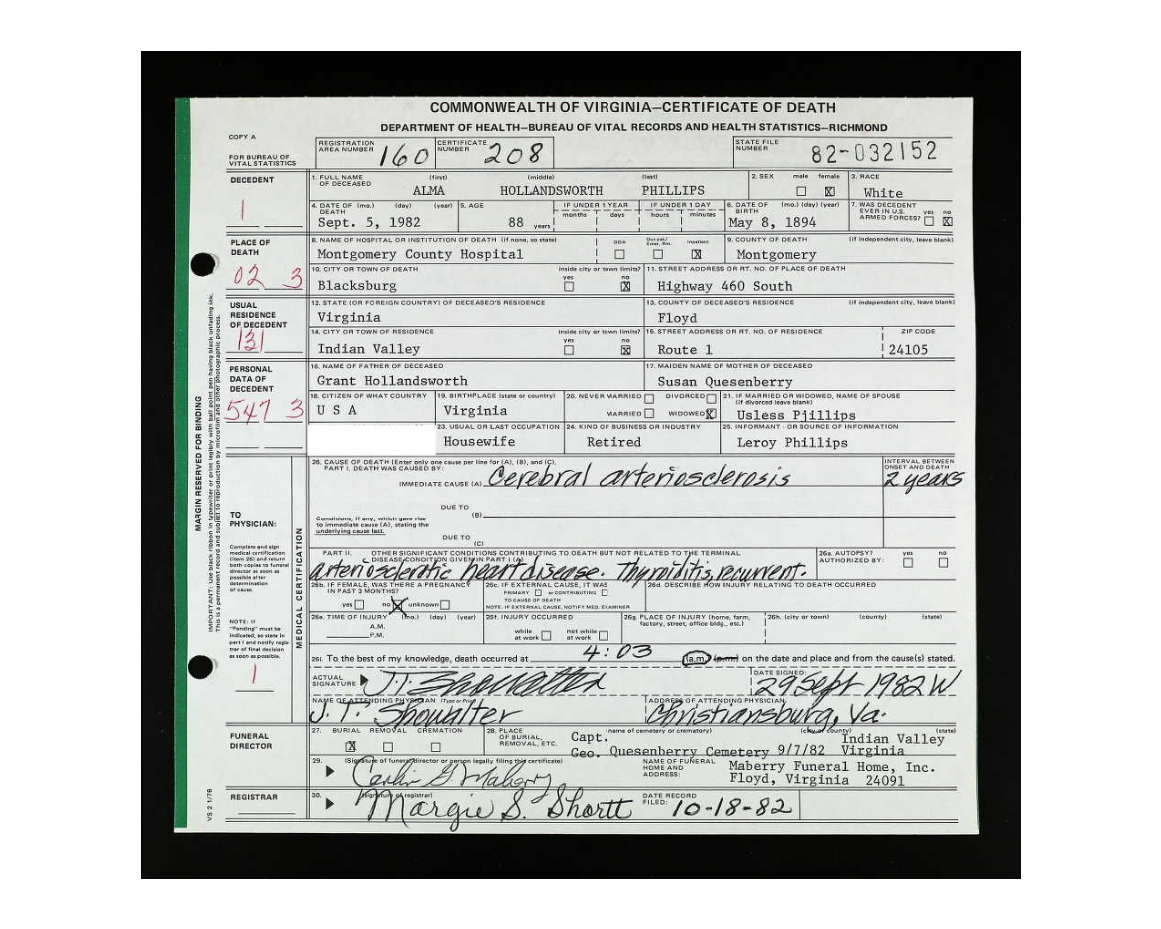 COMMONWEALTH OF VIRGINIA—CERTIFICATE OF DEATH
DEPARTMENT OF HEALTH—BUREAU OF VITAL RECORDS AND HEALTH STATISTICS—RICHMOND
COPY A
FOR BUREAU OF VITAL STATISTICS
REGISTRATION AREA NUMBER 160
CERTIFICATE NUMBER 208
STATE FILE NUMBER 82-032152
DECEDENT
1
1. FULL NAME OF DECEASED (first) (middle) (last)
ALMA HOLLANDSWORTH PHILLIPS
2. SEX male female X
3. RACE White
4. DATE OF DEATH (mo.) (day) (year) Sept. 5, 1982
5. AGE 88 years
IF UNDER 1 YEAR months days
IF UNDER 1 DAY hours minutes
6. DATE OF BIRTH (mo.) (day) (year) May 8, 1894
7. WAS DECEDENT EVER IN U.S. ARMED FORCES? yes no X
PLACE OF DEATH
02 3
8. NAME OF HOSPITAL OR INSTITUTION OF DEATH (if none, so state)
Montgomery County Hospital
DOA Out pat./Emer. Rm. Inpatient X
9. COUNTY OF DEATH (if independent city, leave blank)
Montgomery
10. CITY OR TOWN OF DEATH inside city or town limits? yes no X
Blacksburg
11. STREET ADDRESS OR RT. NO. OF PLACE OF DEATH
Highway 460 South
USUAL RESIDENCE OF DECEDENT
131
12. STATE (OR FOREIGN COUNTRY) OF DECEASED'S RESIDENCE
Virginia
13. COUNTY OF DECEASED'S RESIDENCE (if independent city, leave blank)
Floyd
14. CITY OR TOWN OF RESIDENCE inside city or town limits? yes no X
Indian Valley
15. STREET ADDRESS OR RT. NO. OF RESIDENCE ZIP CODE
Route 1 24105
PERSONAL DATA OF DECEDENT
547 3
16. NAME OF FATHER OF DECEASED
Grant Hollandsworth
17. MAIDEN NAME OF MOTHER OF DECEASED
Susan Quesenberry
18. CITIZEN OF WHAT COUNTRY
U S A
19. BIRTHPLACE (state or country)
Virginia
20. NEVER MARRIED DIVORCED
MARRIED WIDOWED X
21. IF MARRIED OR WIDOWED, NAME OF SPOUSE (if divorced leave blank)
Usless Pjillips
23. USUAL OR LAST OCCUPATION
Housewife
24. KIND OF BUSINESS OR INDUSTRY
Retired
25. INFORMANT - OR SOURCE OF INFORMATION
Leroy Phillips
MARGIN RESERVED FOR BINDING
IMPORTANT: Use black ribbon in typewriter or print legibly with ball point pen having black unfading ink.
This is a permanent record and subject to reproduction by microfilm and other photographic process.
TO PHYSICIAN:
Complete and sign medical certification (item 26) and return both copies to funeral director as soon as possible after determination of cause.
NOTE: If "Pending" must be indicated, so state in part I and notify registrar of final decision as soon as possible.
1
MEDICAL CERTIFICATION
26. CAUSE OF DEATH (Enter only one cause per line for (A), (B), and (C).
PART I. DEATH WAS CAUSED BY:
IMMEDIATE CAUSE (A) Cerebral arteriosclerosis
INTERVAL BETWEEN ONSET AND DEATH
2 years
DUE TO (B)
Conditions, if any, which gave rise to immediate cause (A), stating the underlying cause last.
DUE TO (C)
PART II. OTHER SIGNIFICANT CONDITIONS CONTRIBUTING TO DEATH BUT NOT RELATED TO THE TERMINAL DISEASE CONDITION GIVEN IN PART I (A)
arteriosclerotic heart disease. Thyroiditis, recurrent.
26a. AUTOPSY? AUTHORIZED BY: yes no
26b. IF FEMALE, WAS THERE A PREGNANCY IN PAST 3 MONTHS?
yes no X unknown
26c. IF EXTERNAL CAUSE, IT WAS
PRIMARY or CONTRIBUTING
TO CAUSE OF DEATH
NOTE: IF EXTERNAL CAUSE, NOTIFY MED. EXAMINER
26d. DESCRIBE HOW INJURY RELATING TO DEATH OCCURRED
26e. TIME OF INJURY (mo.) (day) (year)
A.M.
P.M.
26f. INJURY OCCURRED
while at work not while at work
26g. PLACE OF INJURY (home, farm, factory, street, office bldg., etc.)
26h. (city or town) (county) (state)
26i. To the best of my knowledge, death occurred at 4:03 (a.m.) (p.m.) on the date and place and from the cause(s) stated.
ACTUAL SIGNATURE J.T. Showalter
DATE SIGNED: 29 Sept 1982 W
NAME OF ATTENDING PHYSICIAN (Type or Print)
J. T. Showalter
ADDRESS OF ATTENDING PHYSICIAN
Christiansburg, Va.
FUNERAL DIRECTOR
27. BURIAL X REMOVAL CREMATION
28. PLACE OF BURIAL, REMOVAL, ETC. name of cemetery or crematory) (city or county) (state)
Capt. Indian Valley
Geo. Quesenberry Cemetery 9/7/82 Virginia
29. (Signature of funeral director or person legally filing this certificate)
NAME OF FUNERAL HOME AND ADDRESS: Maberry Funeral Home, Inc.
Floyd, Virginia 24091
REGISTRAR
30. (signature of registrar)
Margie S. Shortt
DATE RECORD FILED: 10-18-82
VS 2 1/78